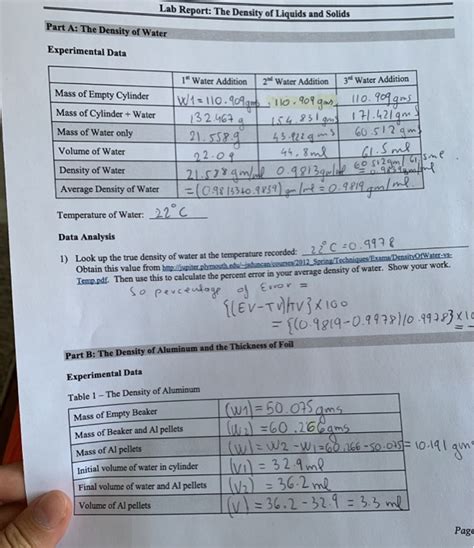 Lab Report: The Density of Liquids and Solids
Part A: The Density of Water
Experimental Data
1st Water Addition 2nd Water Addition 3rd Water Addition
Mass of Empty Cylinder W1=110.909gms 110.909gms 110.909gms
Mass of Cylinder + Water 132.467g 154.831gms 171.421gms
Mass of Water only 21.558g 43.922gms 60.512gms
Volume of Water 22.0g 44.8ml 61.5ml
Density of Water 0.9813gm/ml 60.512gm/61.5ml
Average Density of Water = 0.9819gm/ml
Temperature of Water: 22°C
Data Analysis
1) Look up the true density of water at the temperature recorded: 22°C = 0.9978
Obtain this value from http://jupiter.plymouth.edu/~jsduncan/courses/2012_Spring/Techniques/Exams/DensityOfWater-vs-
Temp.pdf. Then use this to calculate the percent error in your average density of water. Show your work.
So percentage of Error =
{(EV-TV)/TV}×100
= {(0.9819-0.9978)/0.9978}×10
Part B: The Density of Aluminum and the Thickness of Foil
Experimental Data
Table 1 – The Density of Aluminum
Mass of Empty Beaker (W1)=50.075gms
Mass of Beaker and Al pellets (W2)=60.266gms
Mass of Al pellets (W)=W2-W1=60.266-50.075=10.191gm
Initial volume of water in cylinder (V1)=32.9ml
Final volume of water and Al pellets (V2)=36.2ml
Volume of Al pellets (V)=36.2-32.9=3.3ml
Page